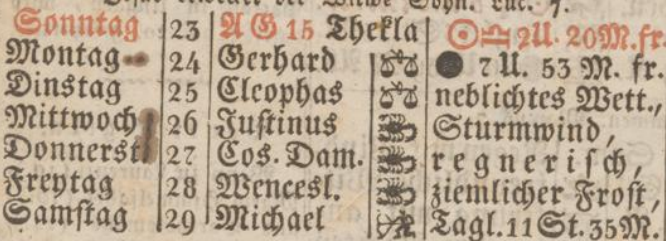 Jesus erwecket der Witwe Sohn. Luc. 7.
Sonntag 23 A G 15 Thekla ☉♎ 2 U. 20 M. fr.
Montag 24 Gerhard ● 7 U. 53 M. fr.
Dinstag 25 Cleophas neblichtes Wett.,
Mittwoch 26 Justinus Sturmwind,
Donnerst. 27 Cos. Dam. regnerisch,
Freytag 28 Wencesl. ziemlicher Frost,
Samstag 29 Michael Tagl. 11 St. 35 M.